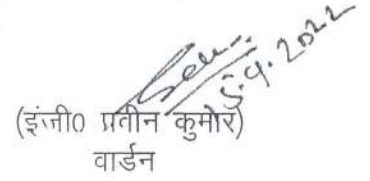 5.9.2022
(इंजी0 प्रतीन कुमार)
वार्डन